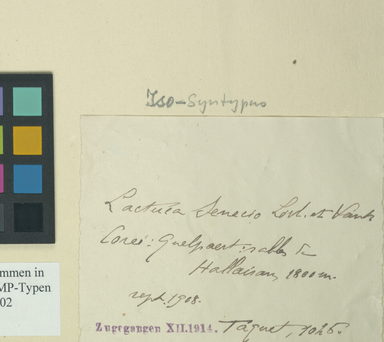 Iso-Syntypus
Lactuca Senecio Lévl. et Vant
Corée: Quelpaert: sables
Hallaisan, 1800 m.
sept. 1908.
Zugegangen XII.1914. Taquet,
mmen in
MP-Typen
02